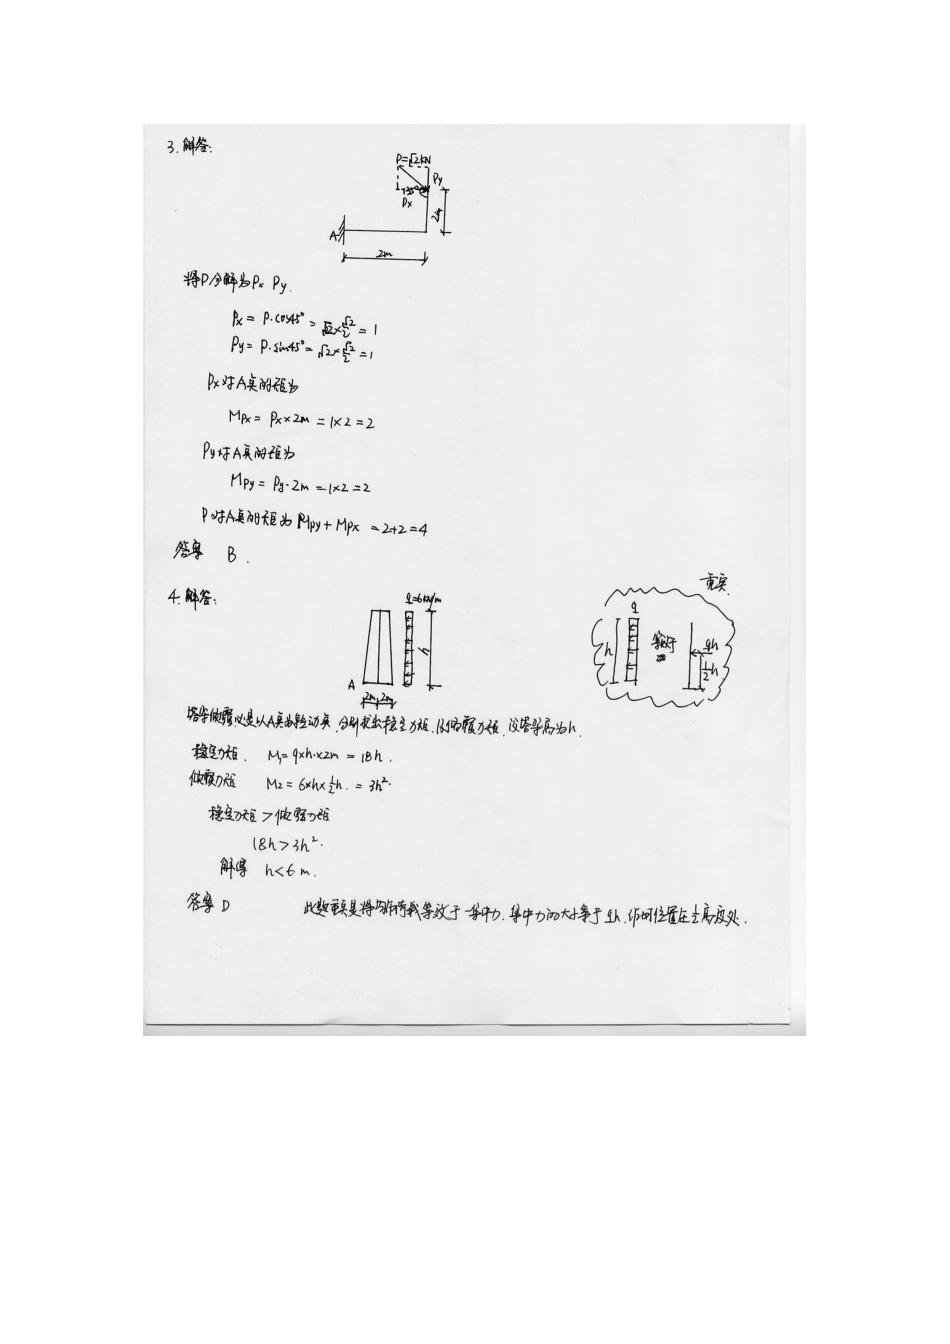 3. 解答:
P=√2KN
Py
135°
Px
2m
A
2m
将P分解为Px Py.
Px = P·cos45° = √2×√2/2 = 1
Py = P·sin45° = √2×√2/2 = 1
Px对A点的矩为
MPx = Px×2m = 1×2 = 2
Py对A点的矩为
MPy = Py·2m = 1×2 = 2
P对A点的矩为 MPy + MPx = 2+2=4
答案 B.
4. 解答:
q=6kN/m
h
A
2m 2m
重点.
q
h
等效于
=
qh
1/2h
塔架倾覆以是以A点为转动点,分别求出稳定力矩,及倾覆力矩,设塔架高为h.
稳定力矩. M1= 9×h×2m = 18h.
倾覆力矩 M2 = 6×h×1/2h. = 3h².
稳定力矩 > 倾覆力矩
18h > 3h².
解得 h<6m.
答案 D
此题重点是将均布荷载等效于一集中力.集中力的大小等于qh.作用位置在1/2高度处.